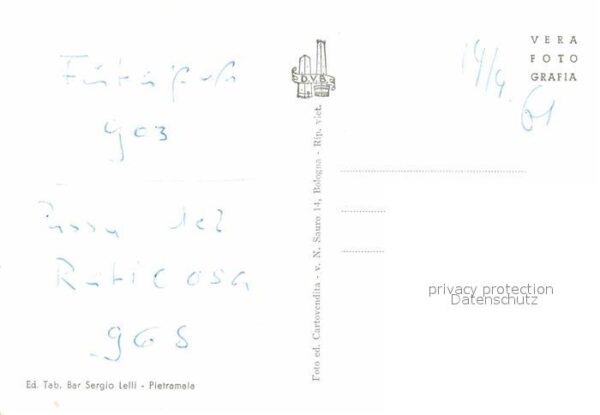 Futa Pass
903
Passo del
Raticosa
968
Ed. Tab. Bar Sergio Lelli - Pietramala
D.V.B.
Foto ed. Cartovendita - v. N. Sauro 14, Bologna - Rip. viet.
14/4. 61
VERA
FOTO
GRAFIA
privacy protection
Datenschutz